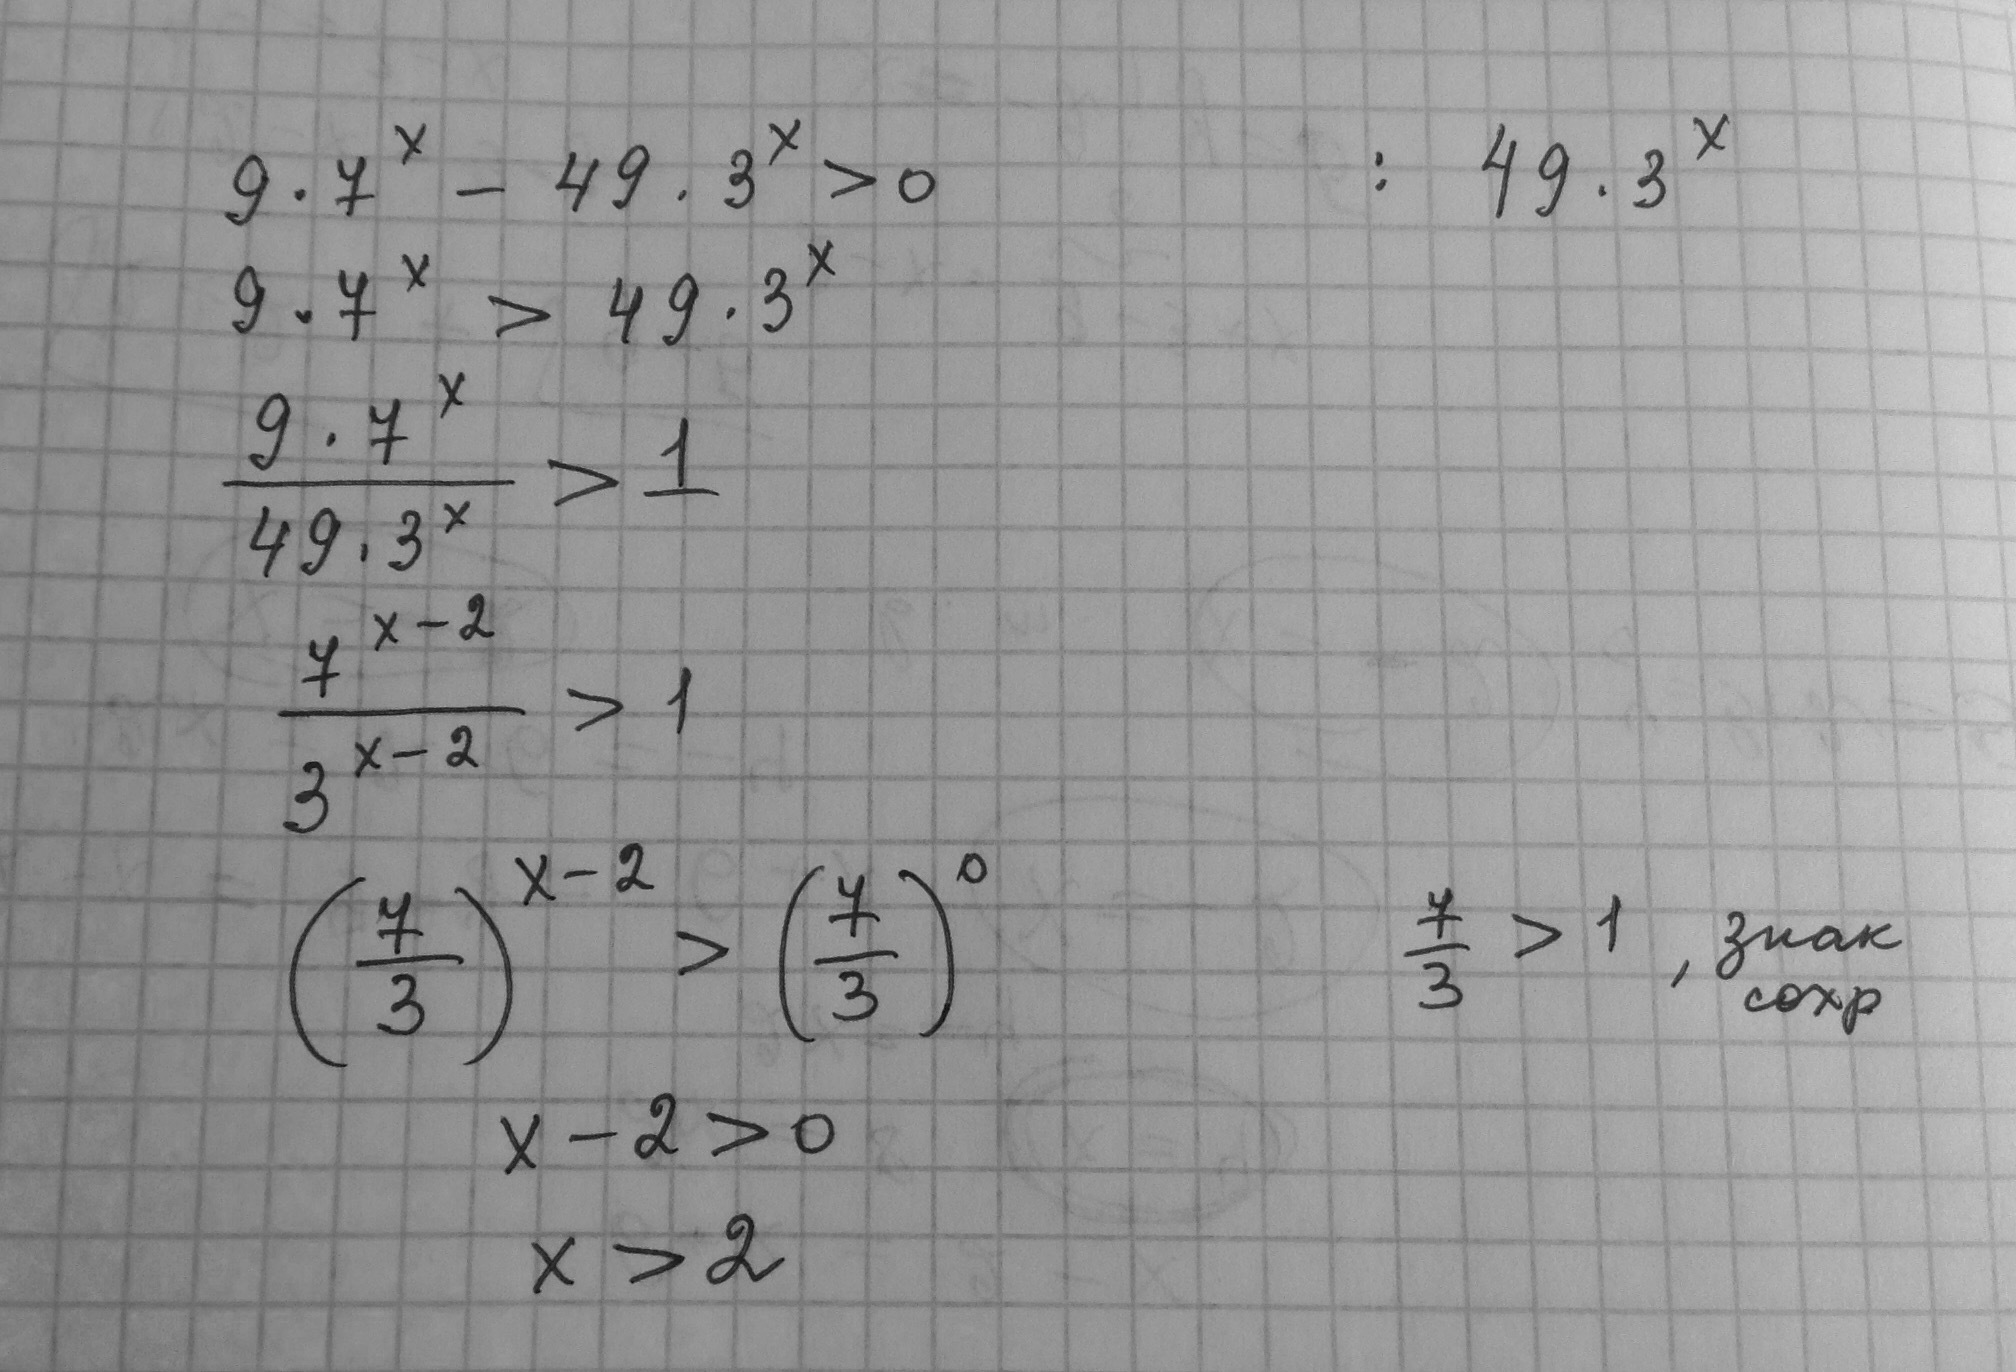 9 · 7^x − 49 · 3^x > 0 : 49 · 3^x
9 · 7^x > 49 · 3^x
9 · 7^x / 49 · 3^x > 1
7^(x−2) / 3^(x−2) > 1
(7/3)^(x−2) > (7/3)^0 7/3 > 1, знак
сохр
x − 2 > 0
x > 2